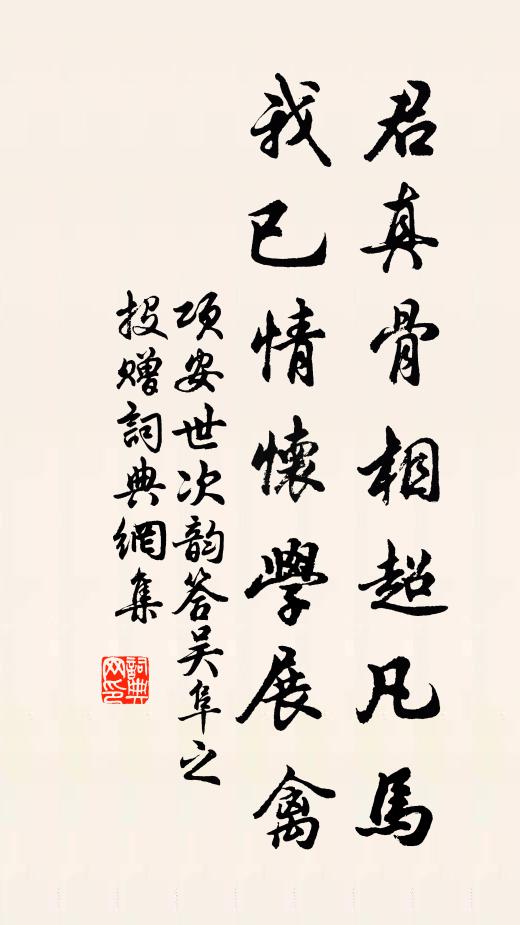 君真骨相超凡馬
我已情懷學展禽
項安世次韵答吴阜之
投贈詞典網集
詞典網印